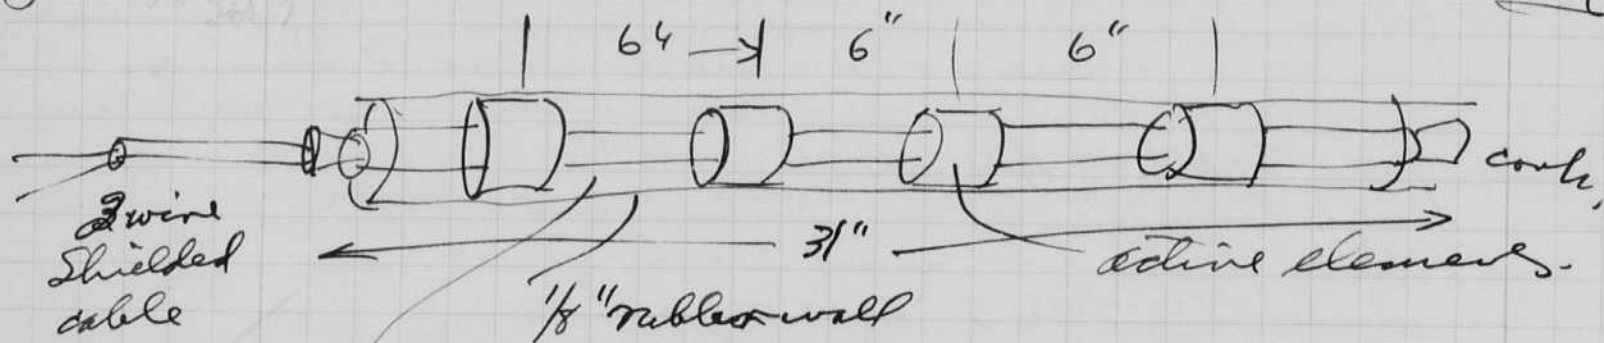 6" 6" 6"
cork,
2 wire
Shielded
cable
31"
active elements.
1/8" rubber wall